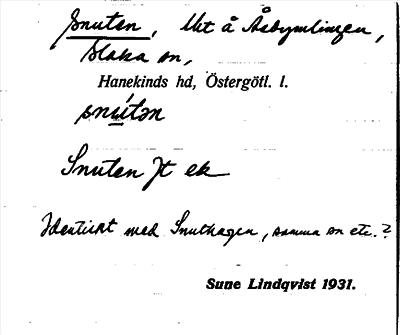 Snuten, Utt å Åsbymlingen,
Slaka sn,
Hanekinds hd, Östergötl. l.
snútən
Snuten Jt ek
Identiskt med Snuthagen, samma sn etc.?
Sune Lindqvist 1931.